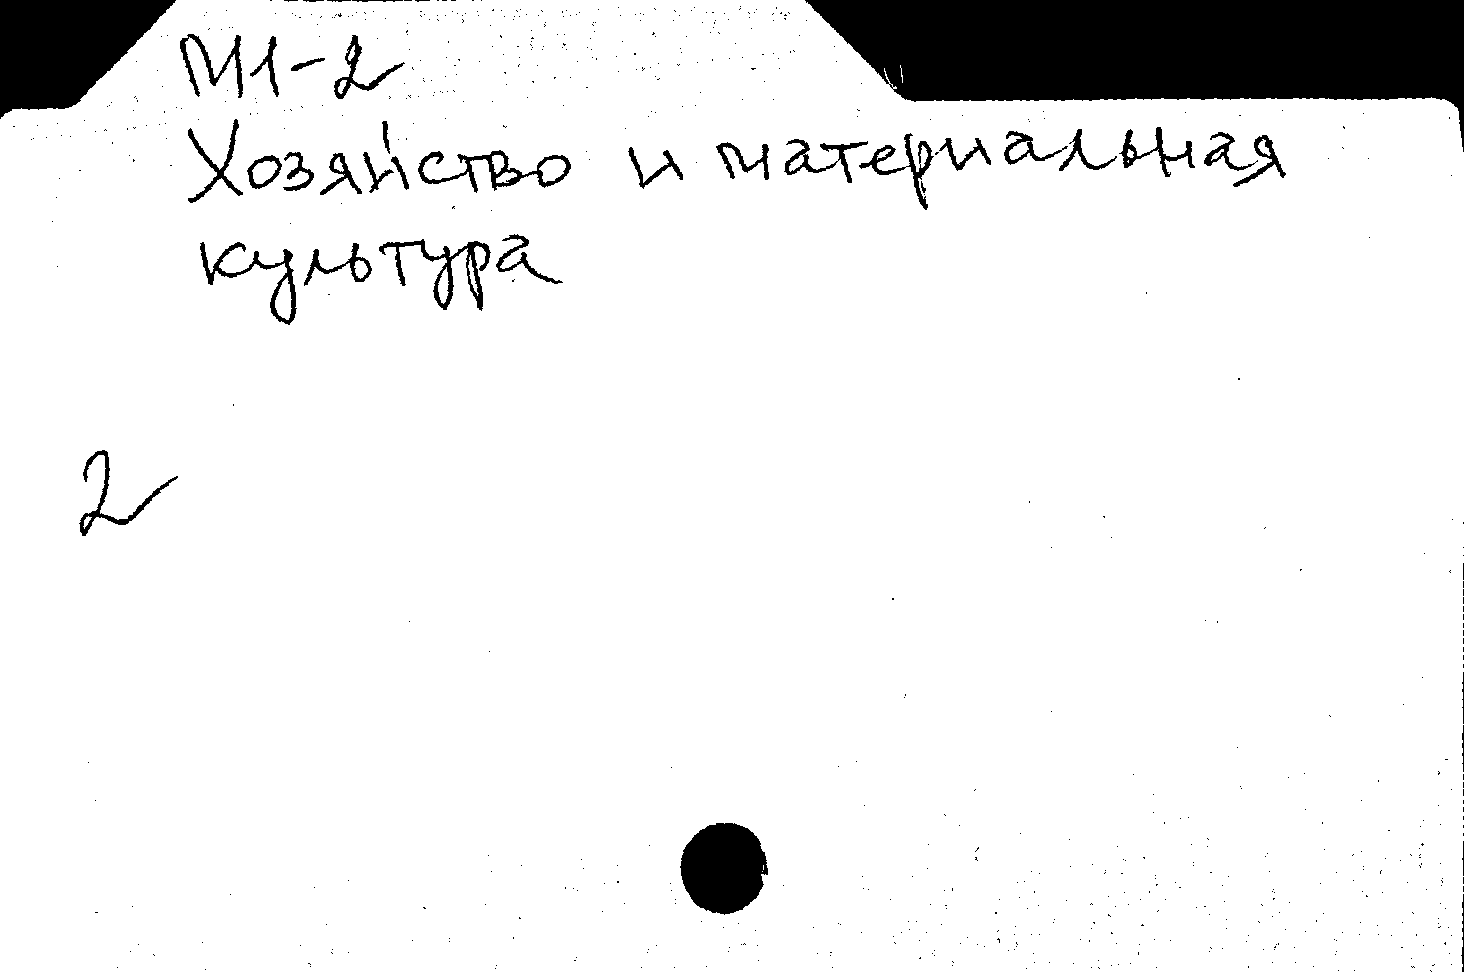 М1-2
Хозяйство и материальная
культура
2